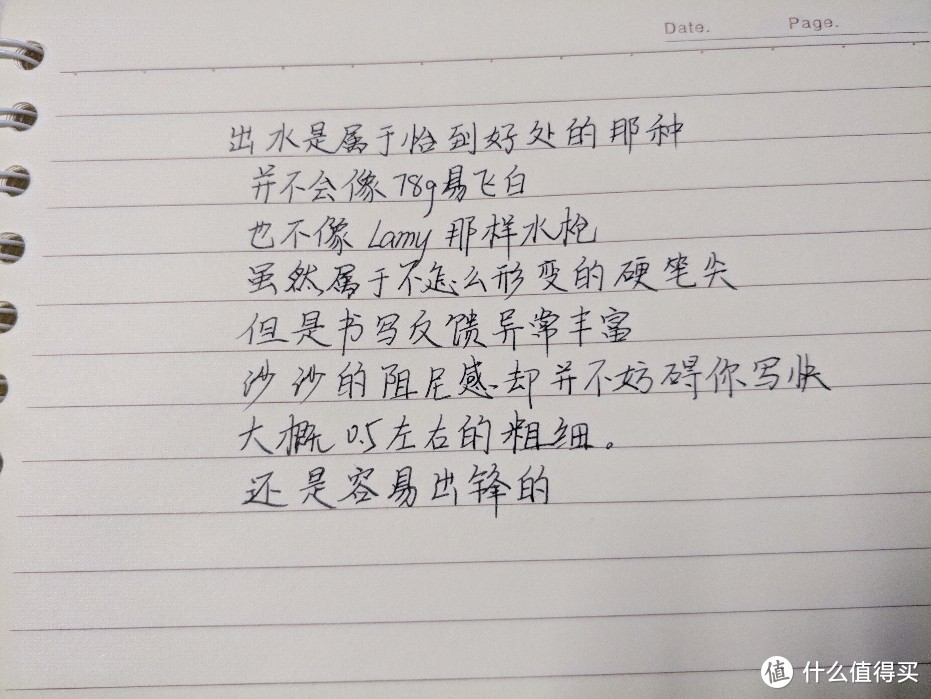 Date. Page.
出水是属于恰到好处的那种
并不会像78g易飞白
也不像Lamy那样水枪
虽然属于不怎么形变的硬笔尖
但是书写反馈异常丰富
沙沙的阻尼感却并不妨碍你写快
大概0.5左右的粗细。
还是容易出锋的
值 什么值得买